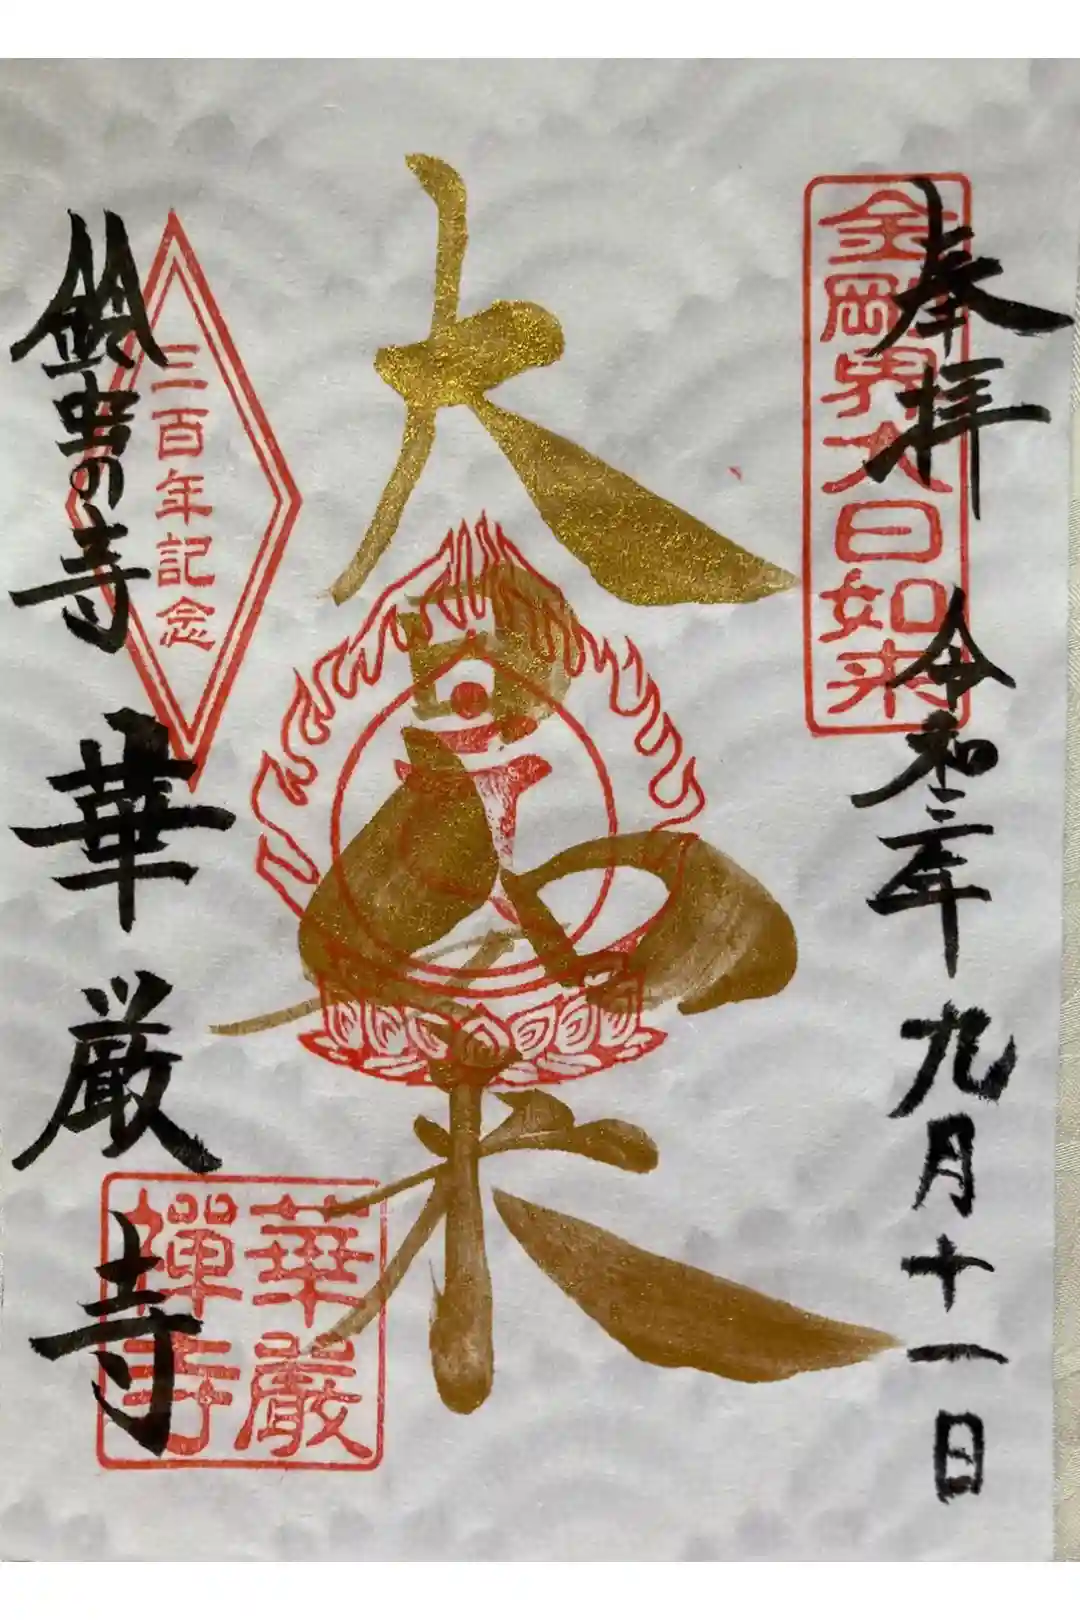 奉拝
令和三年九月十一日
金剛界大日如来
大日如来
三百年記念
鈴虫の寺
華厳寺
華厳
禅寺